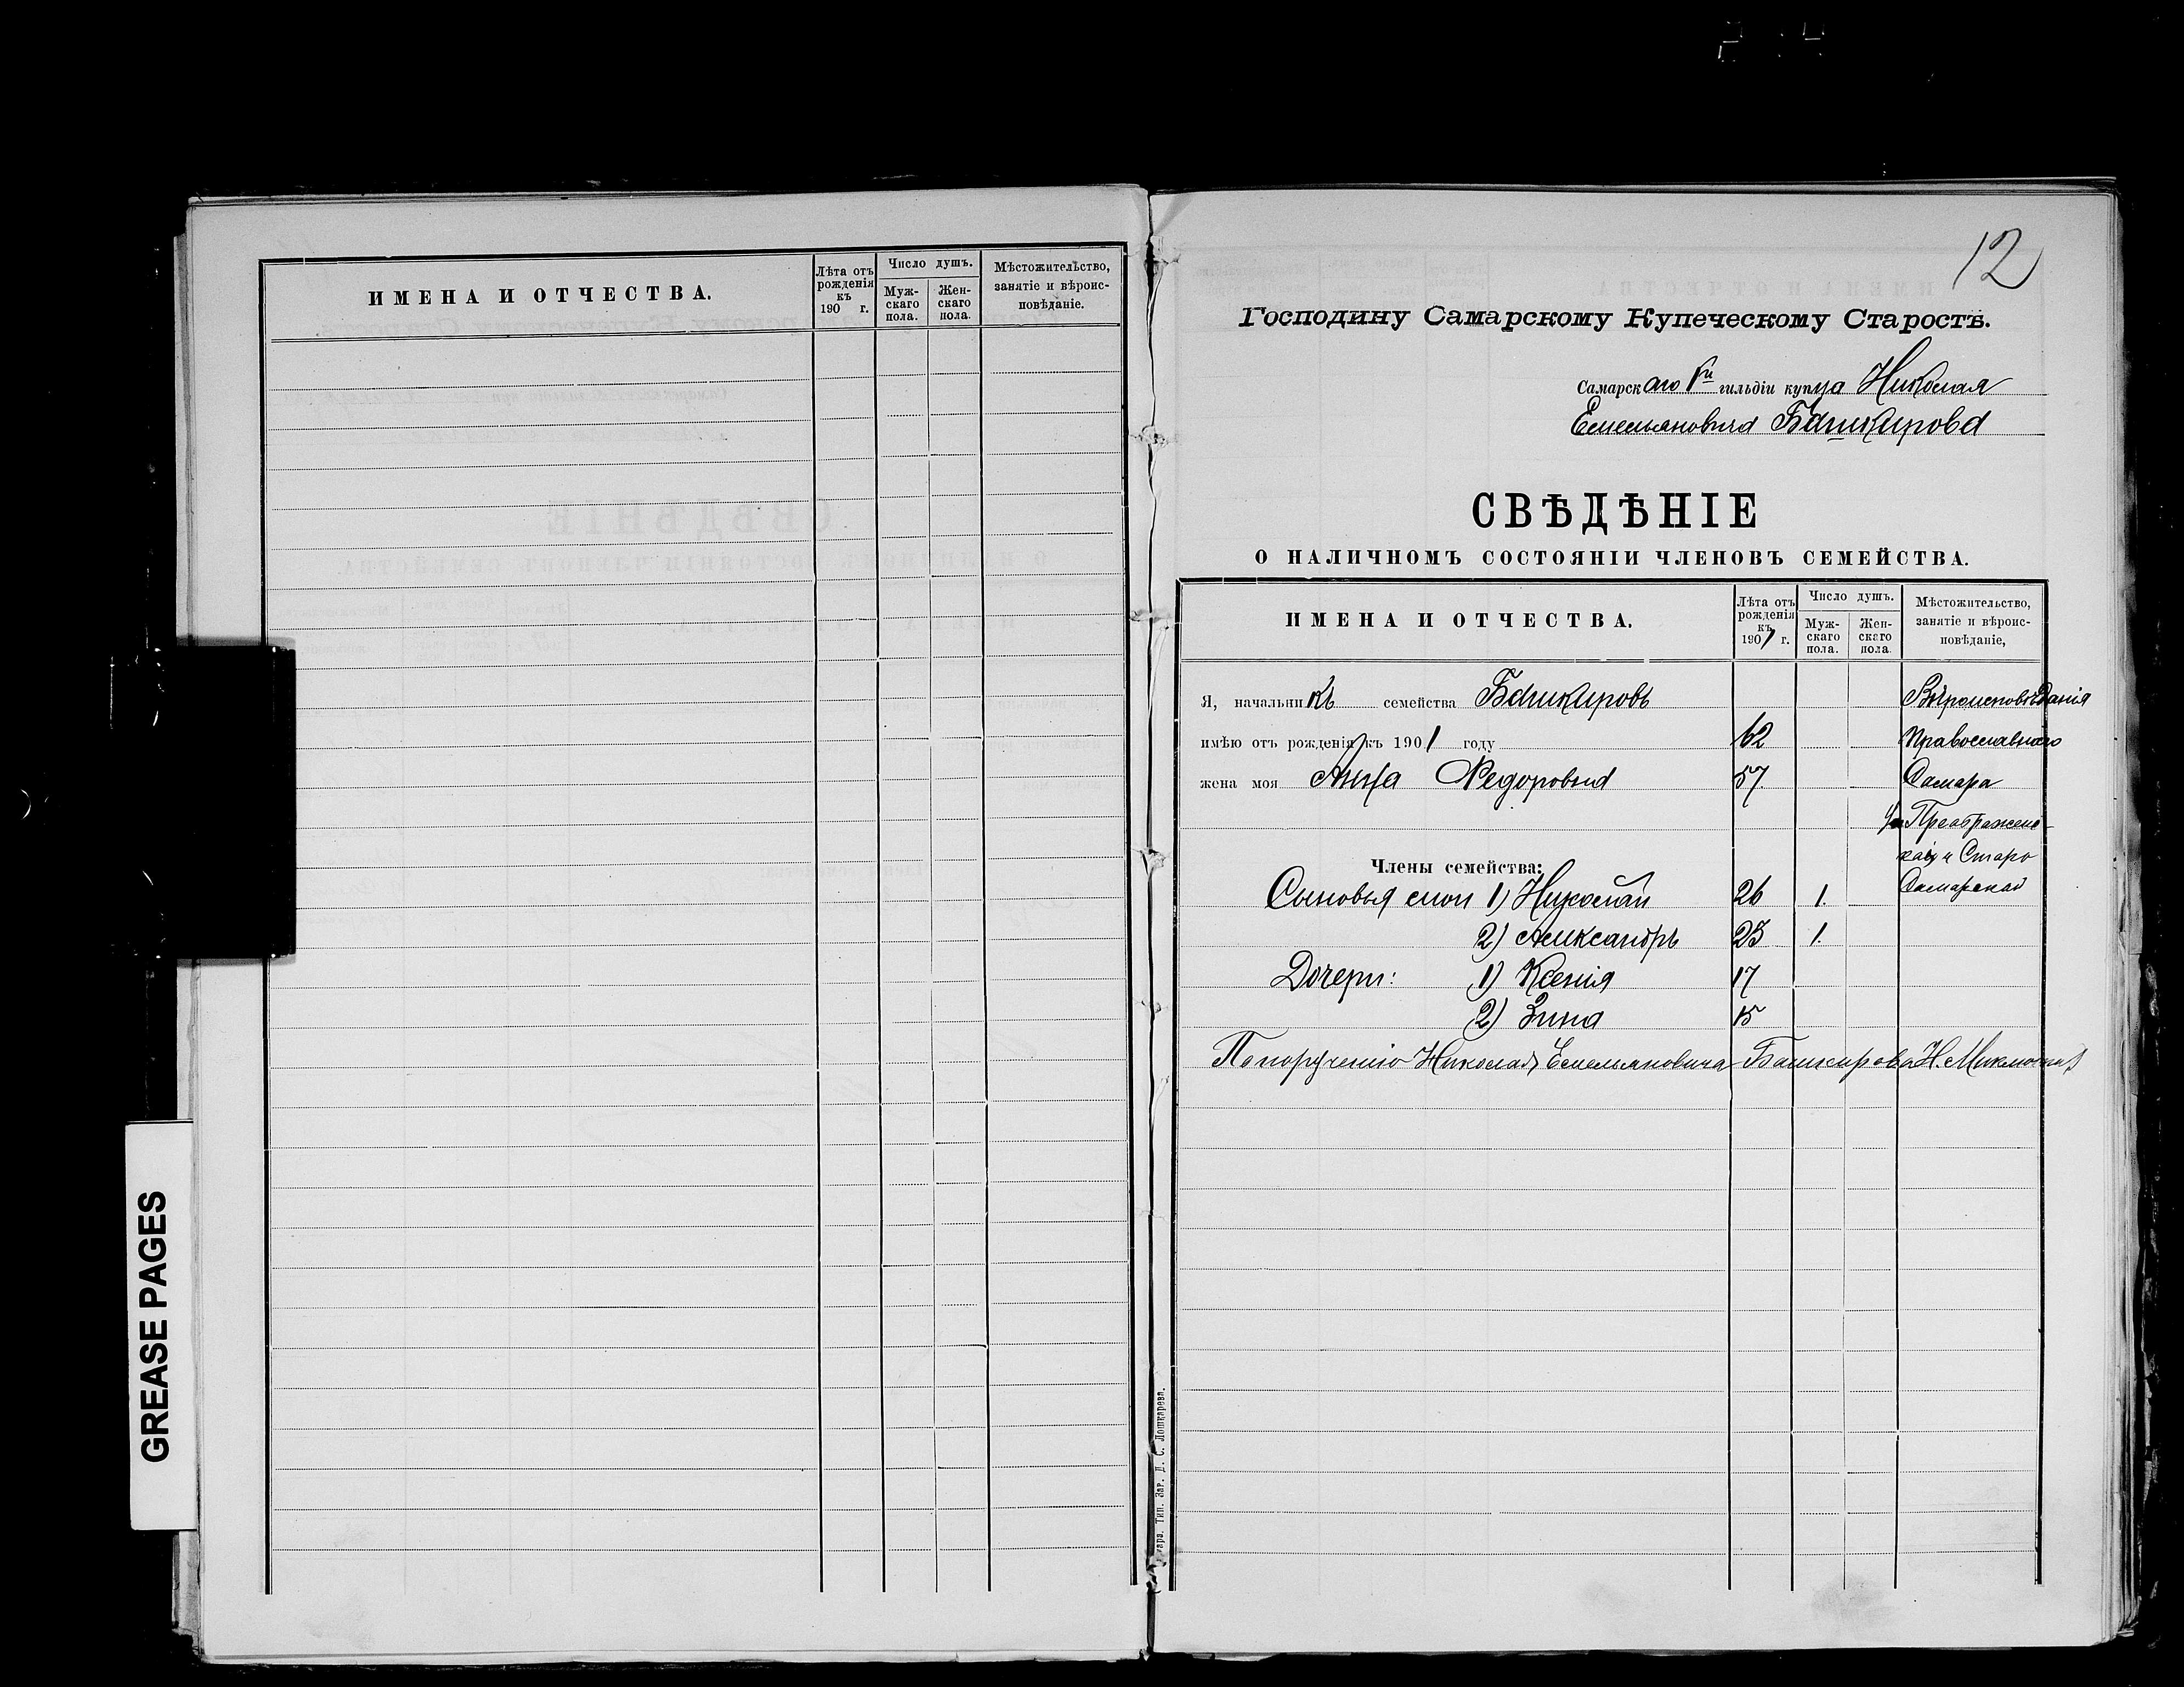 ИМЕНА И ОТЧЕСТВА.
Лѣта отъ рожденія къ 190 г.
Число душъ.
Муж-скаго пола.
Жен-скаго пола.
Мѣстожительство, занятіе и вѣроис-повѣданіе.
12
Господину Самарскому Купеческому Старостѣ.
Самарскаго 1й гильдіи купца Николая
Емельяновича Башкирова
СВѢДѢНІЕ
О НАЛИЧНОМЪ СОСТОЯНІИ ЧЛЕНОВЪ СЕМЕЙСТВА.
ИМЕНА И ОТЧЕСТВА.
Лѣта отъ рожденія къ 1901 г.
Число душъ.
Муж-скаго пола.
Жен-скаго пола.
Мѣстожительство, занятіе и вѣроис-повѣданіе,
Я, начальникъ семейства Башкировъ Вѣроисповѣданія
имѣю отъ рожденія къ 1901 году 62 Православнаго
жена моя Анна Федоровна 57. Самара
Преображенс-
кой и Старо
Члены семейства:
Самарской
Сыновья мои 1) Николай 26 1.
2) Александръ 23 1.
Дочери: 1) Ксенія 17
2) Зина 15
По порученію Николая Емельяновича Башкирова Н.
Самара. Тип. Заг. Д. С. Лошкарева.
GREASE PAGES